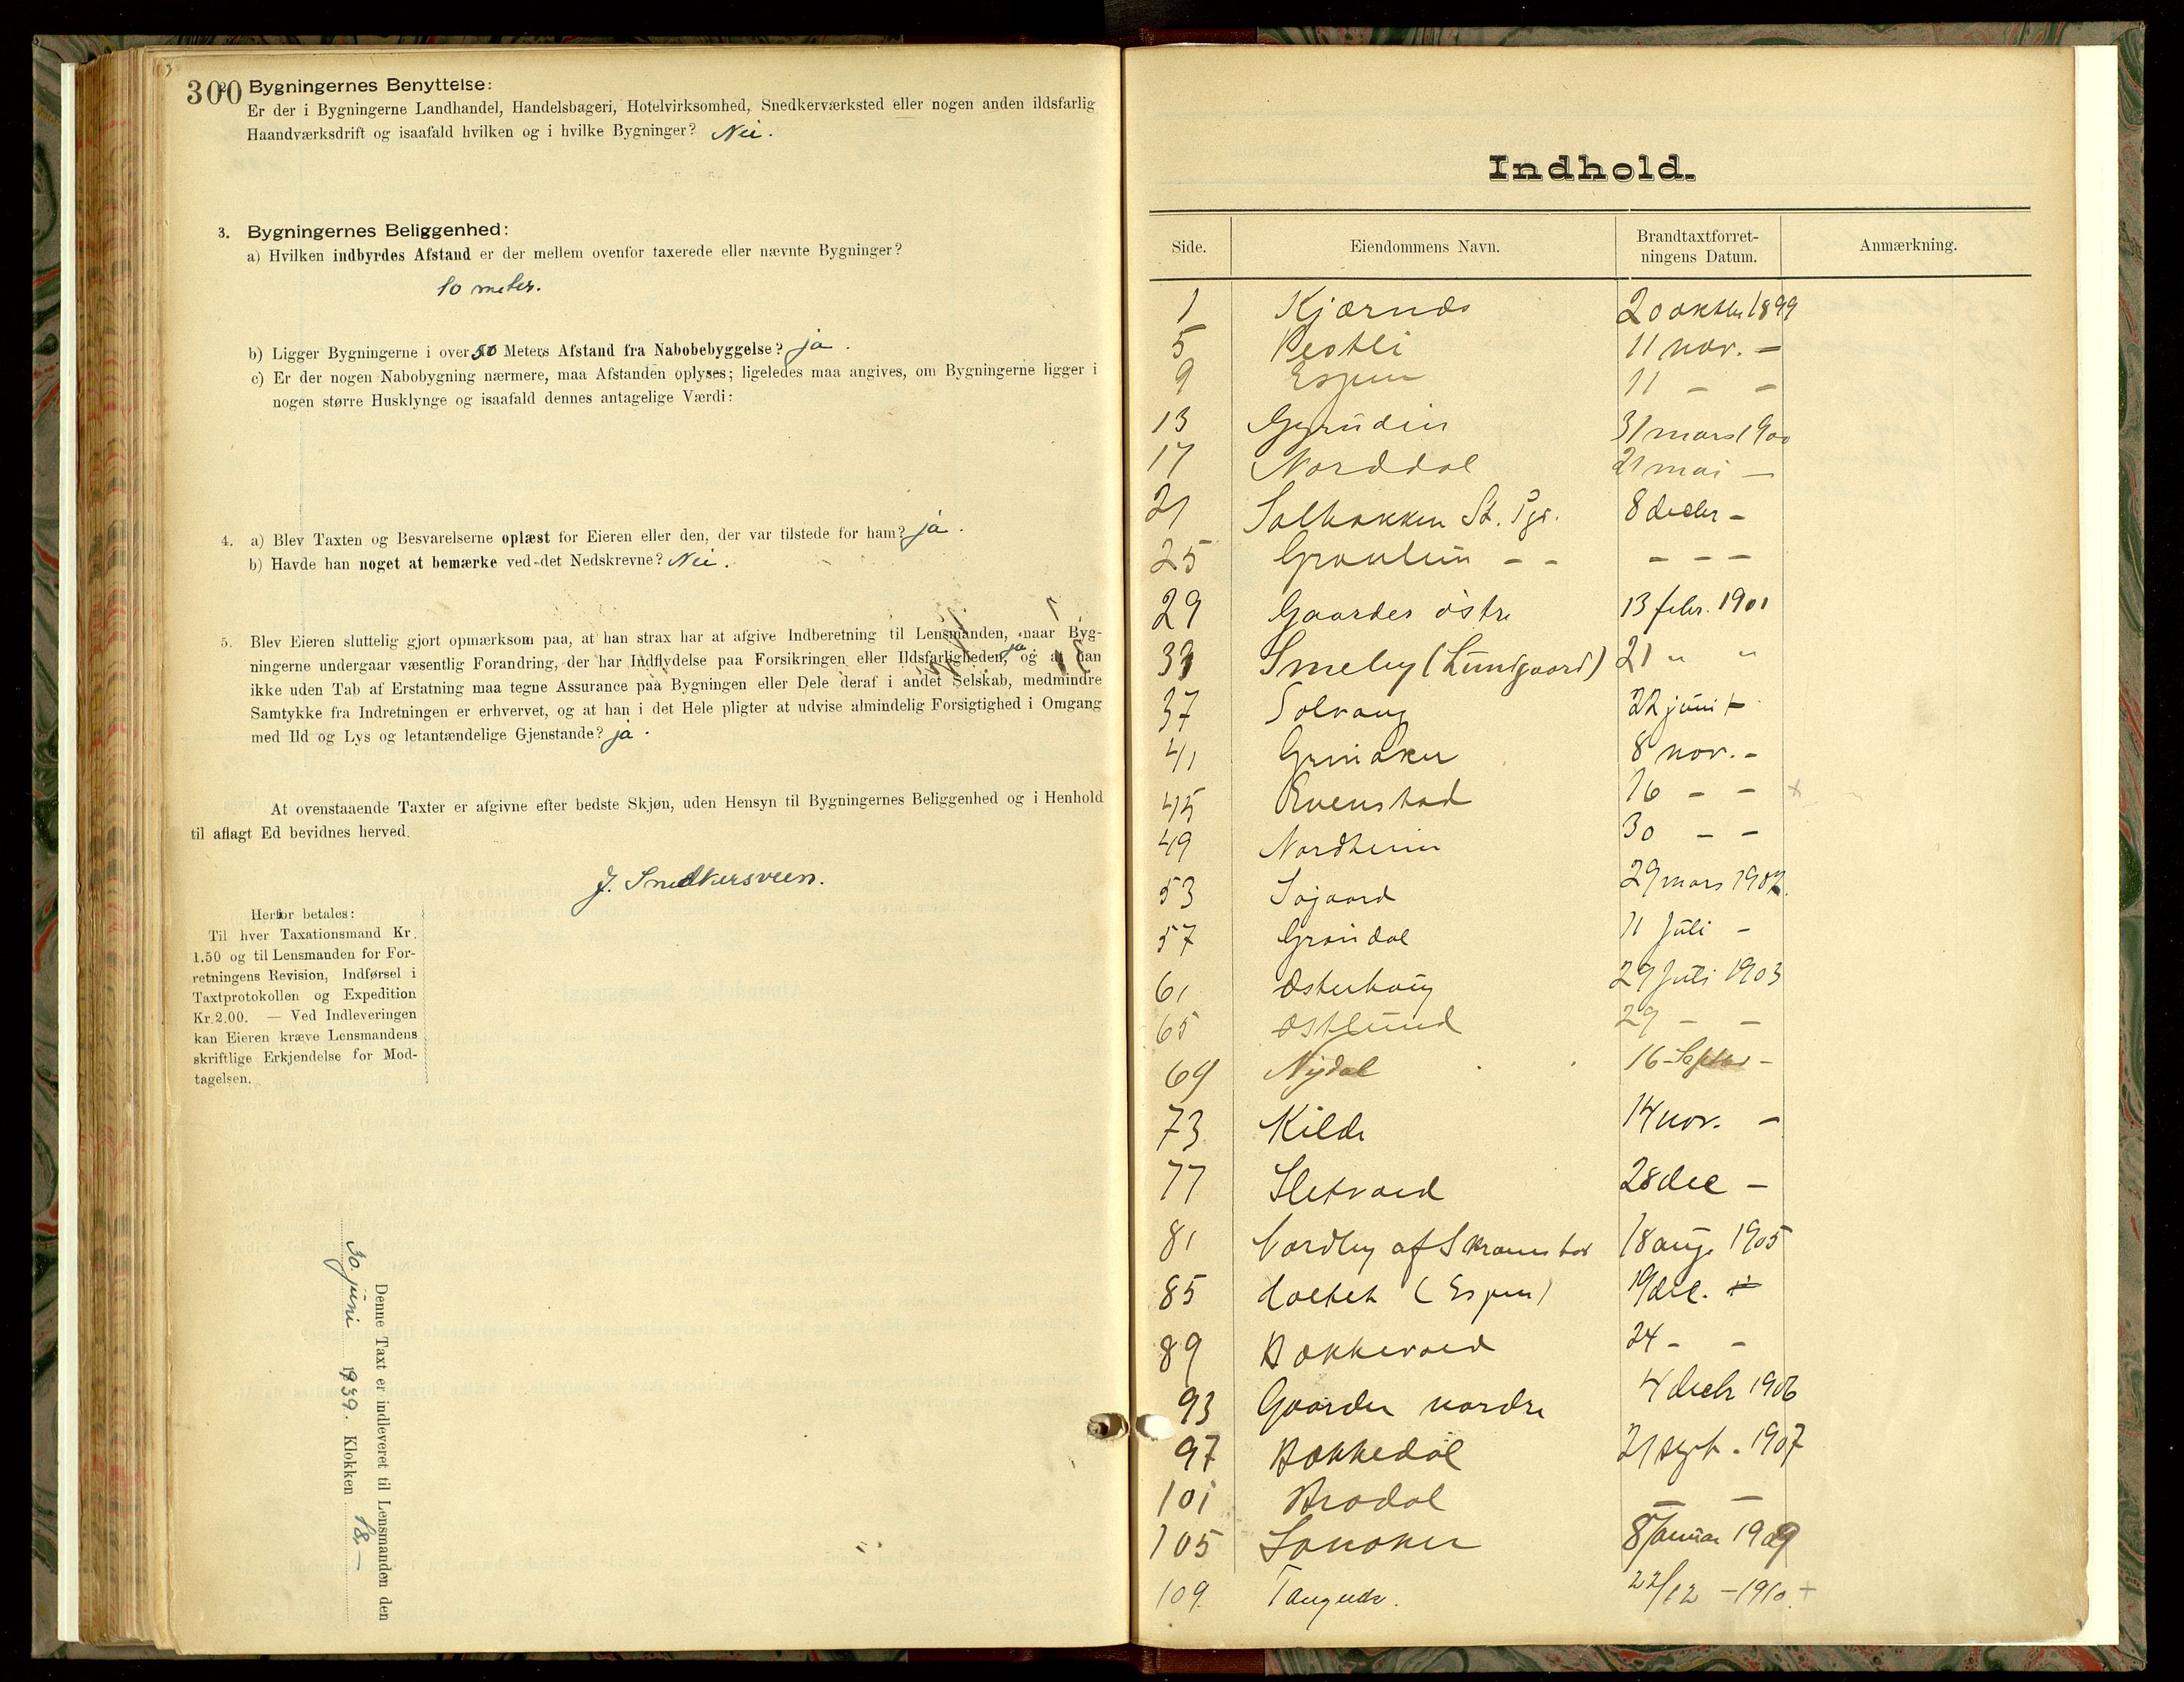 300
2. Bygningernes Benyttelse:
Er der i Bygningerne Landhandel, Handelsbageri, Hotelvirksomhed, Snedkerværksted eller nogen anden ildsfarlig
Haandværksdrift og isaafald hvilken og i hvilke Bygninger? Nei.
3. Bygningernes Beliggenhed:
a) Hvilken indbyrdes Afstand er der mellem ovenfor taxerede eller nævnte Bygninger?
10 meter.
b) Ligger Bygningerne i over 50 Meters Afstand fra Nabobebyggelse? ja.
c) Er der nogen Nabobygning nærmere, maa Afstanden oplyses; ligeledes maa angives, om Bygningerne ligger i
nogen større Husklynge og isaafald dennes antagelige Værdi:
4. a) Blev Taxten og Besvarelserne oplæst for Eieren eller den, der var tilstede for ham? ja.
b) Havde han noget at bemærke ved det Nedskrevne? Nei.
5. Blev Eieren sluttelig gjort opmærksom paa, at han strax har at afgive Indberetning til Lensmanden, naar Byg-
ningerne undergaar væsentlig Forandring, der har Indflydelse paa Forsikringen eller Ildsfarligheden, ja og at han
ikke uden Tab af Erstatning maa tegne Assurance paa Bygningen eller Dele deraf i andet Selskab, medmindre
Samtykke fra Indretningen er erhvervet, og at han i det Hele pligter at udvise almindelig Forsigtighed i Omgang
med Ild og Lys og letantændelige Gjenstande? ja.
At ovenstaaende Taxter er afgivne efter bedste Skjøn, uden Hensyn til Bygningernes Beliggenhed og i Henhold
til aflagt Ed bevidnes herved.
J. Snedkersveen.
Herfor betales:
Til hver Taxationsmand Kr.
1.50 og til Lensmanden for For-
retningens Revision, Indførsel i
Taxtprotokollen og Expedition
Kr. 2.00. — Ved Indleveringen
kan Eieren kræve Lensmandens
skriftlige Erkjendelse for Mod-
tagelsen.
Denne Taxt er indleveret til Lensmanden den
30. juni 1939. Klokken 18.—
Indhold.
Side. Eiendommens Navn. Brandtaxtforret-ningens Datum. Anmærkning.
1 Kjærnæs 20 oktbr 1899
5 Pestli 11 nov. —
9 Espen 11 — —
13 31 mars 1900
17 Norddal 21 mai —
21 Solbakken St. 8 decbr —
25 — — — — —
29 Gaarder østre 13 febr. 1901
33 Smeby (Lundgaard) 21 " "
37 Solvang 22 juni —
41 Grinaker 8 nov. —
45 Evenstad 16 — — x
49 Nordheim 30 — —
53 Søgaard 29 mars 1902.
57 Grøndal 11 Juli —
61 Østerhaug 29 Juli 1903
65 Østlund 29 — —
69 Nydal 16 Septbr —
73 Kilde 14 nov. —
77 Sletvold 28 dec —
81 Nordby af Skramstad 18 aug. 1905
85 Holtet (Espen) 19 dec. —
89 Bakkevold 24 — —
93 Gaarder nordre 4 decbr 1906
97 Bakkedal 21 sept. 1907
101 Brodal — —
105 8 Januar 1909
109 Tangnes. 22/12 — 1910. +